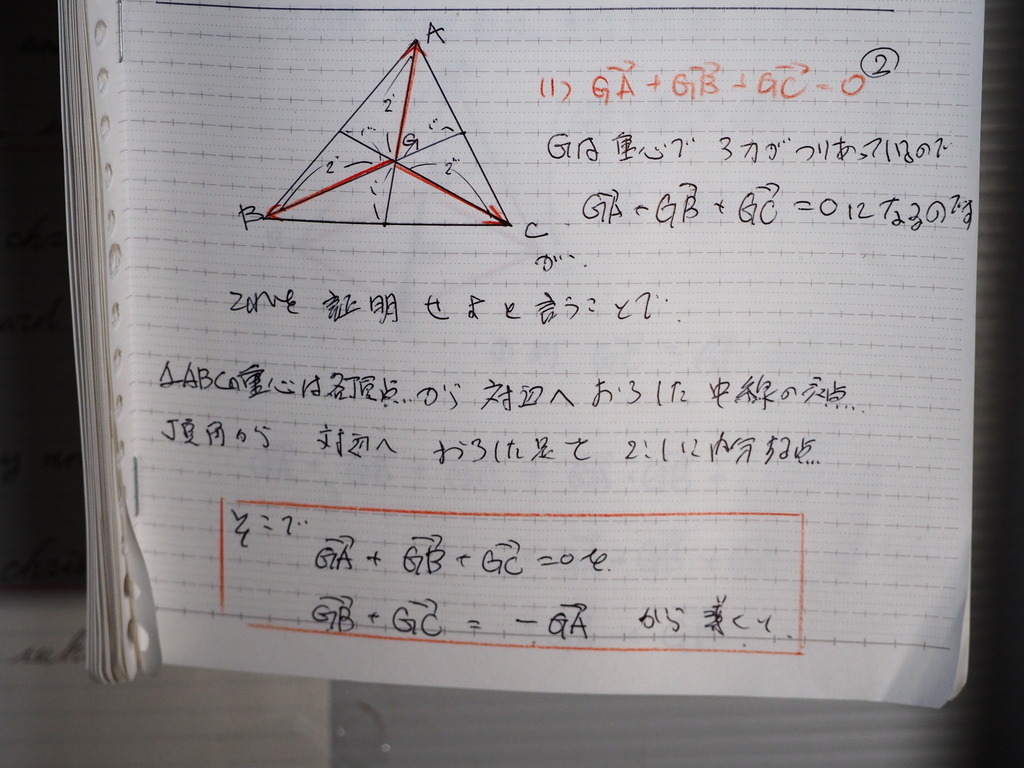 ②
(1) GA→ + GB→ + GC→ = 0
A
2
1
1
1
G
2
2
1
1
B
C
Gは重心で 3力がつりあっているので
GA→ + GB→ + GC→ = 0 になるのです
が..
これを 証明 せよと言うことで.
△ABCの重心は各頂点..から 対辺へ おろした 中線の交点
頂角から 対辺へ おろした足で 2:1に内分する点
そこで
GA→ + GB→ + GC→ = 0 を.
GB→ + GC→ = - GA→ から 導くと.